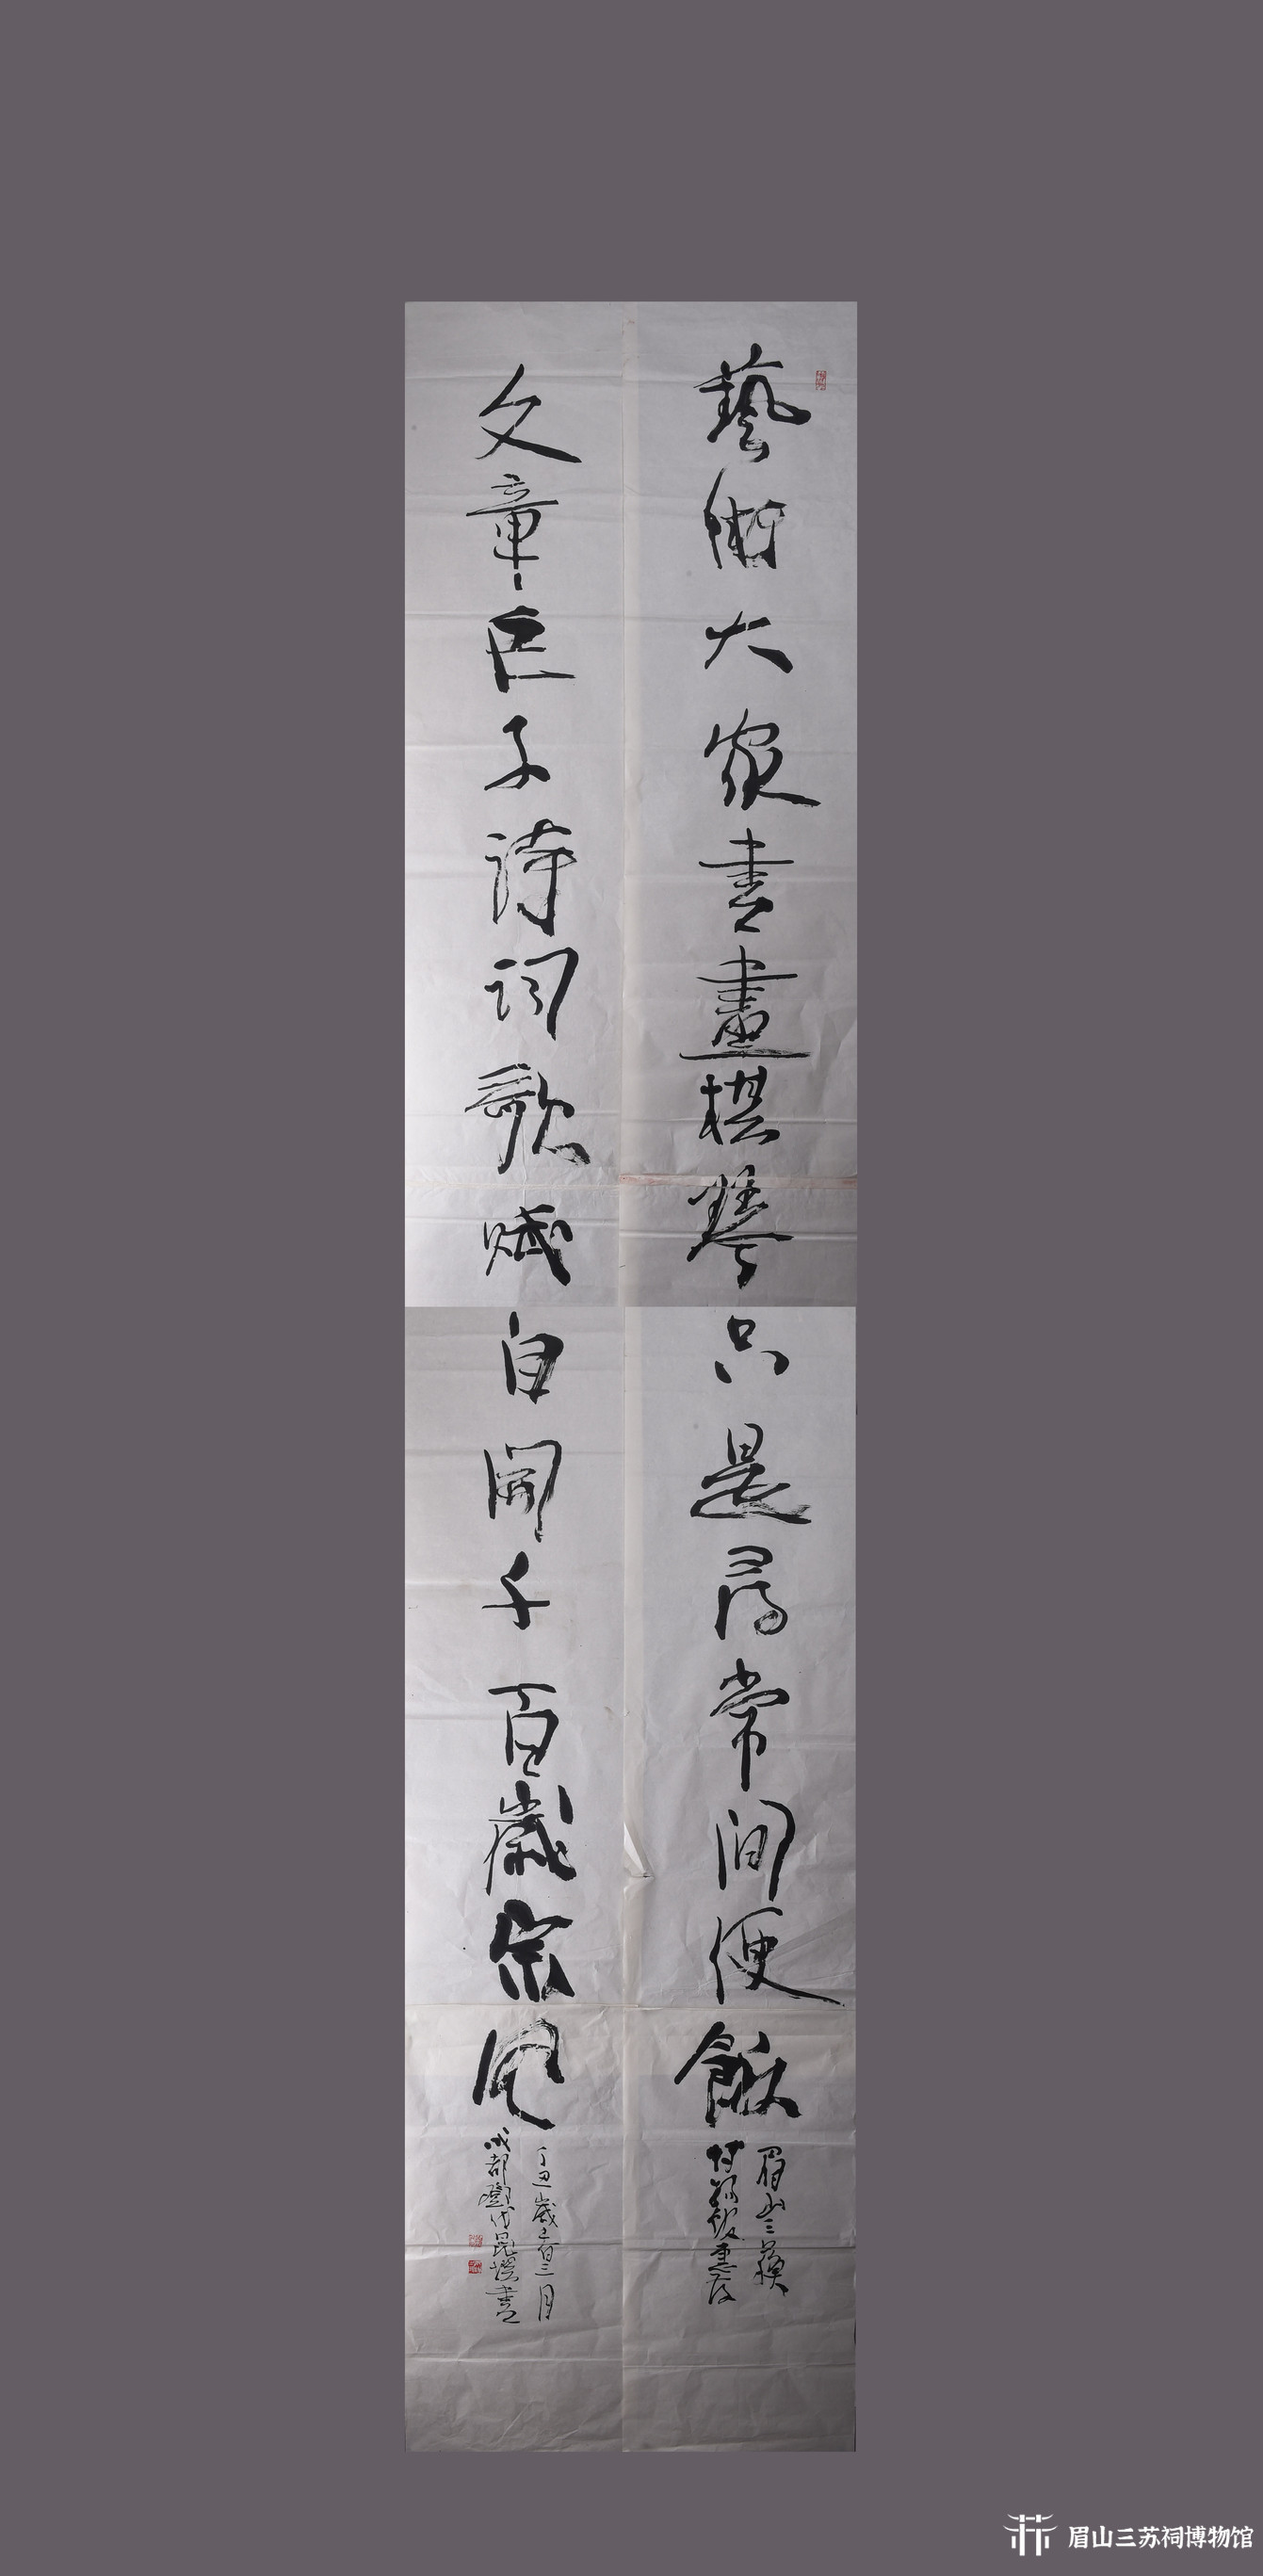 藝術大家書畫棋琴只是尋常間便飯
眉山三蘇
惠存
文章巨子詩詞歌賦自開千百歲宗風
丁丑歲三月
成都鄧代昆撰書
眉山三苏祠博物馆